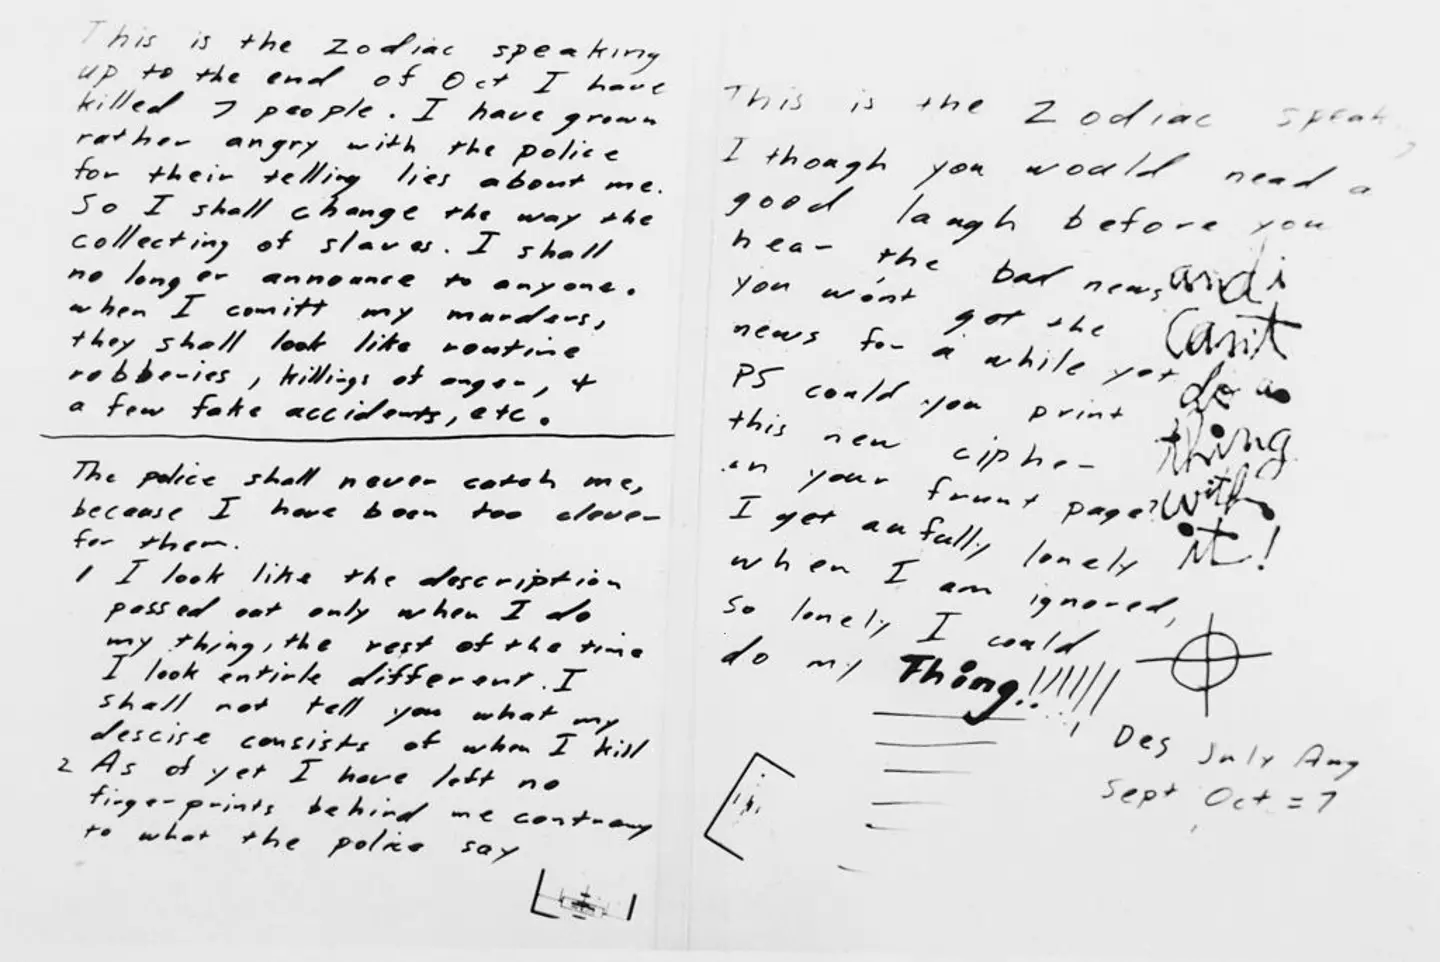 This is the Zodiac speaking
up to the end of Oct I have
killed 7 people. I have grown
rather angry with the police
for their telling lies about me.
So I shall change the way the
collecting of slaves. I shall
no longer announce to anyone.
when I comitt my murders,
they shall look like routine
robberies, killings of anger, +
a few fake accidents, etc.
The police shall never catch me,
because I have been too clever
for them.
1 I look like the description
passed out only when I do
my thing, the rest of the time
I look entirle different. I
shall not tell you what my
descise consists of when I kill
2 As of yet I have left no
fingerprints behind me contrary
to what the police say
This is the Zodiac speak
I though you would nead a
good laugh before you
hear the bad news
you won't get the
news for a while yet
PS could you print
this new cipher
in your frunt page?
I get aufully lonely
when I am ignored,
So lonely I could
do my Thing!!!!!!!
and i
can't
do a
thing
with
it!
Des July Aug
Sept Oct = 7